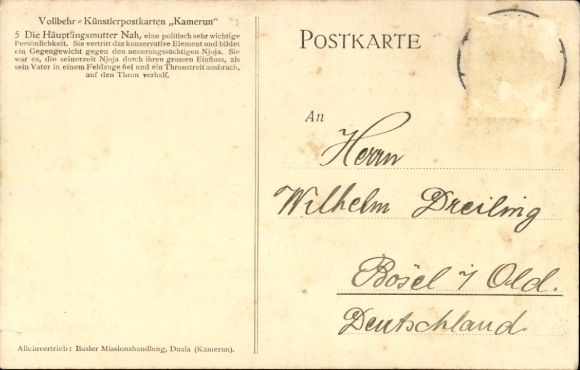 Vollbehr-Künstlerpostkarten „Kamerun"
5 Die Häuptlingsmutter Nah, eine politisch sehr wichtige
Persönlichkeit. Sie vertritt das konservative Element und bildet
ein Gegengewicht gegen den neuerungssüchtigen Njoja. Sie
war es, die seinerzeit Njoja durch ihren grossen Einfluss, als
sein Vater in einem Feldzuge fiel und ein Thronstreit ausbrach,
auf den Thron verhalf.
Alleinvertrieb: Basler Missionshandlung, Duala (Kamerun).
POSTKARTE
An
Herrn
Wilhelm Dreiling
Bösel i/ Old.
Deutschland.